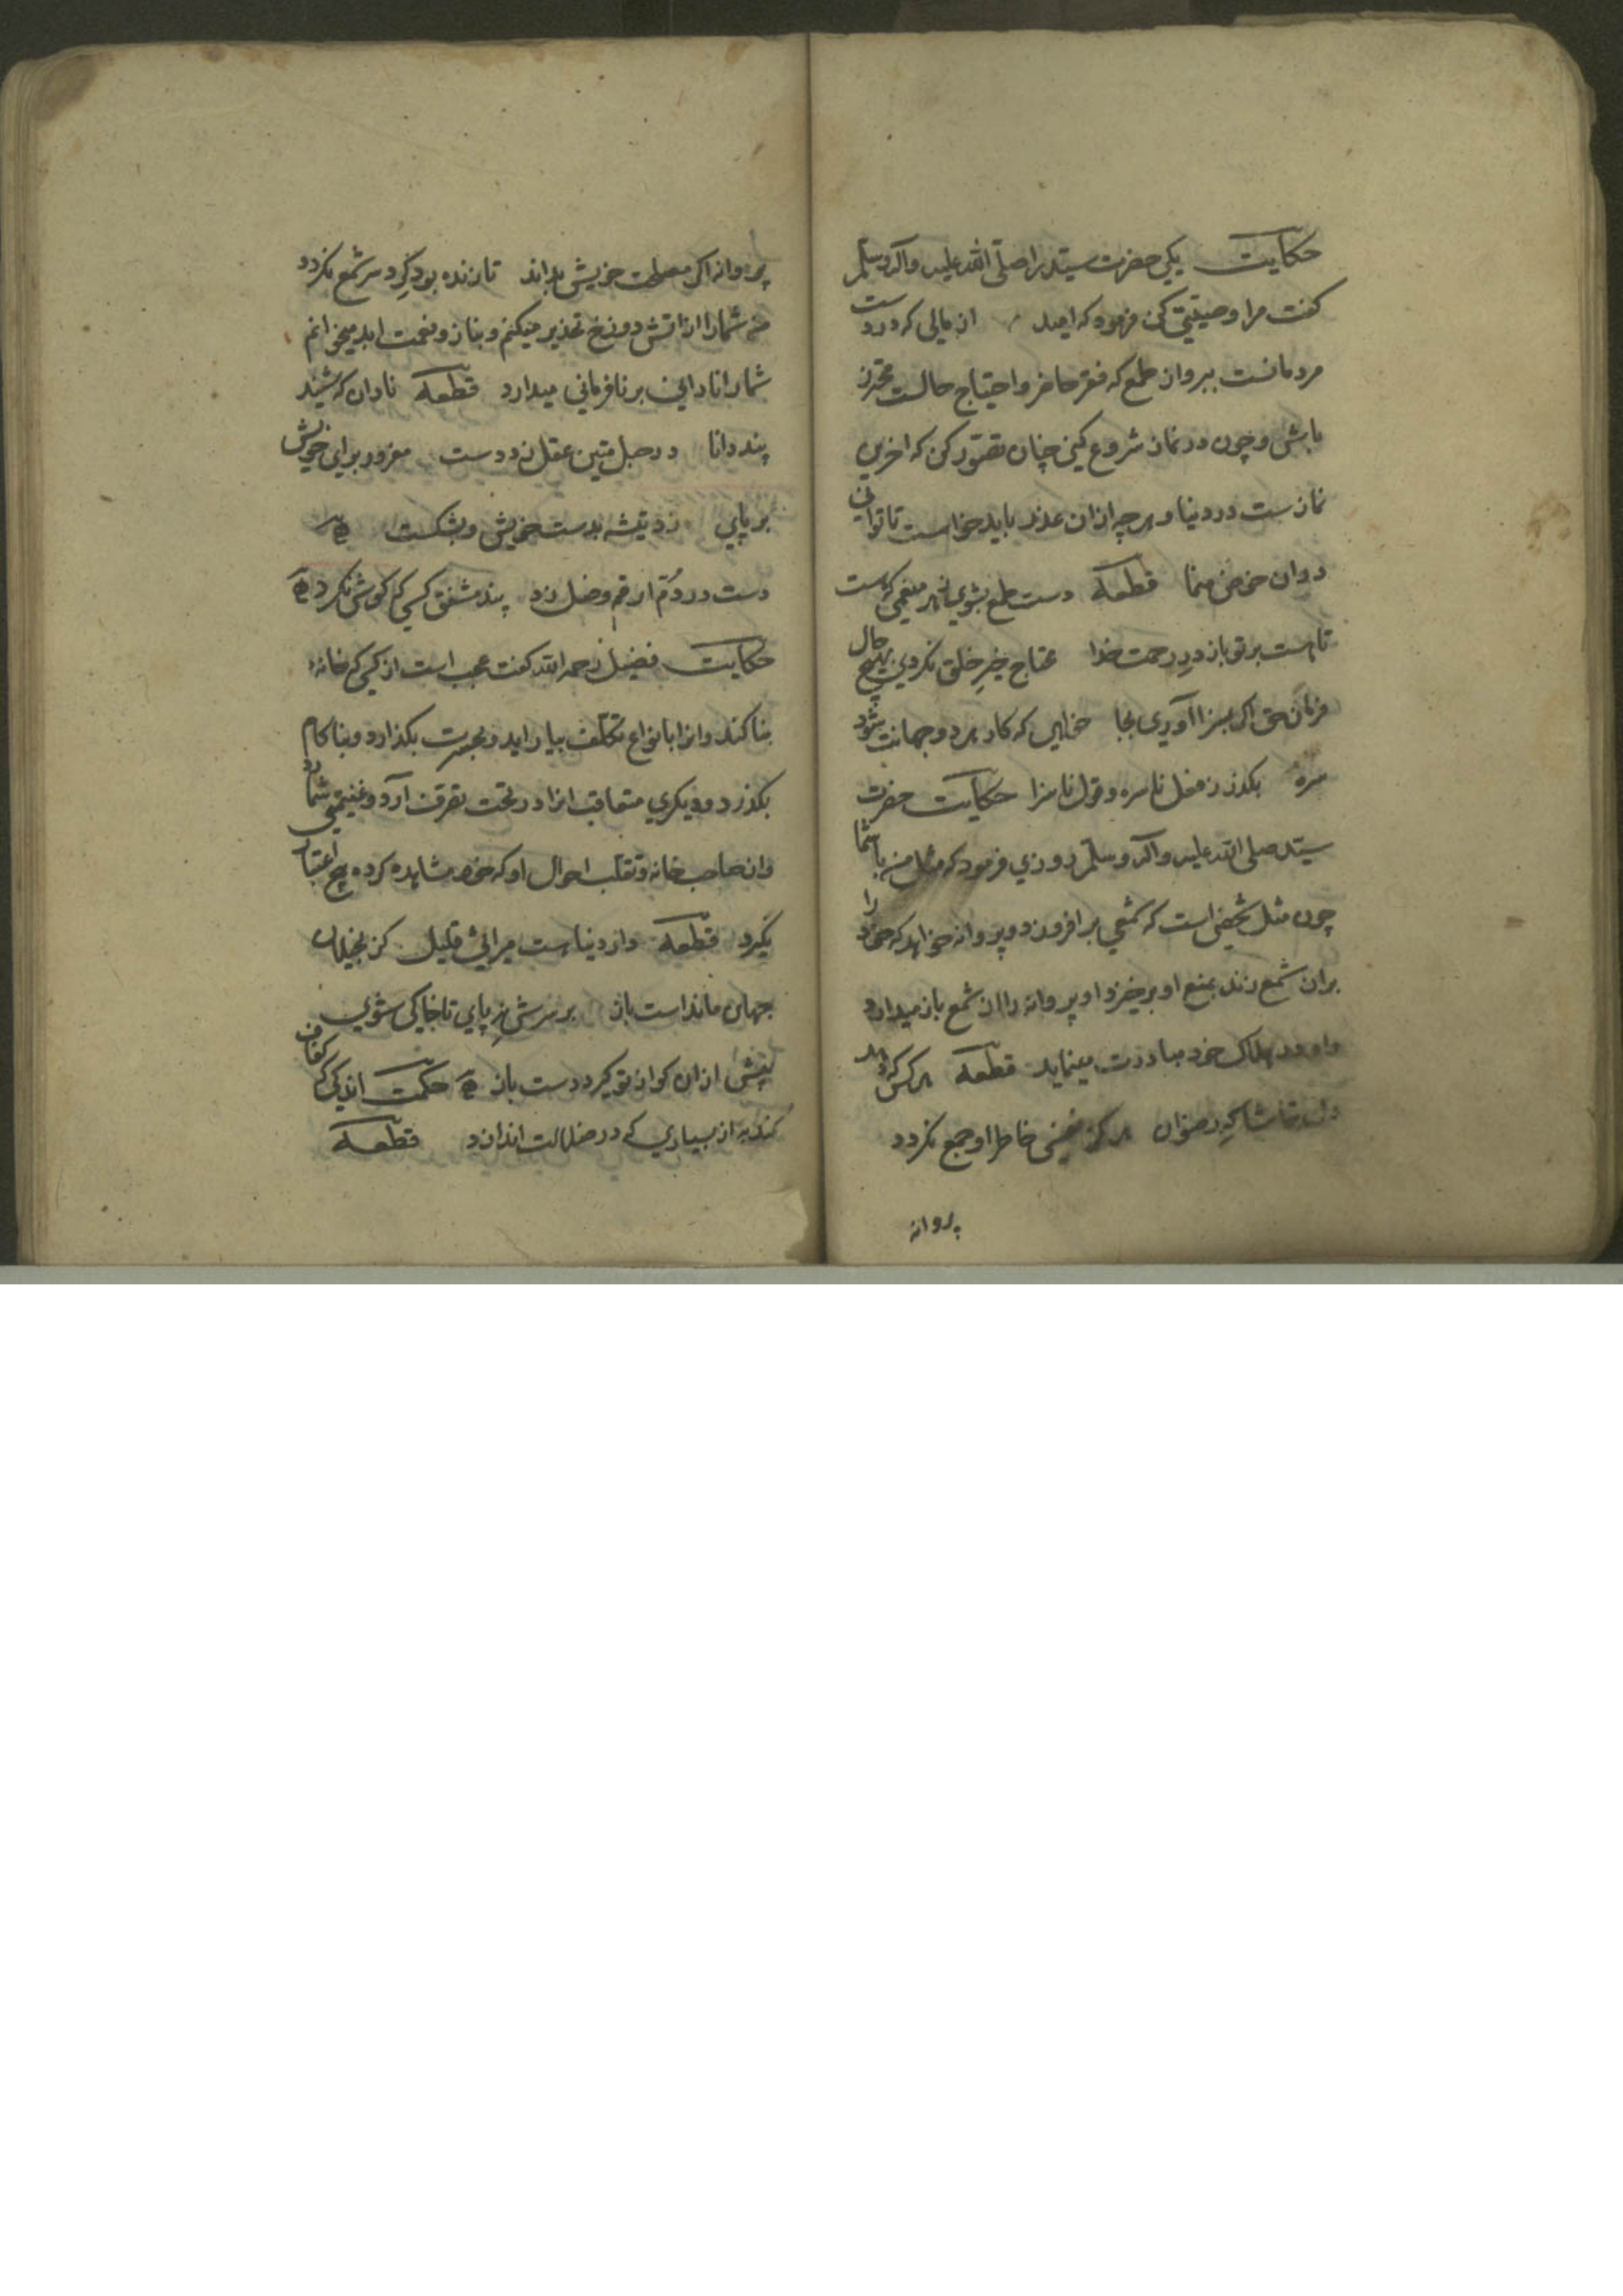 حکایت یکی حضرت سید را صلی الله علیه وآله وسلم
کفت مرا وصیتی کن فرمود که امید از مالی که در دست
مردمانست ببر و از طمع که فقر حاضر و احتیاج حالست محترز
باش و چون در نماز شروع کنی چنان تصور کن که اخرین
نمازست در دنیا و هرچه ازان عذر باید خواست تا توانی
دران خوض منما قطعه دست طمع بشوی ز هر منعمی که هست
تا هست بر تو باز در رحمت خدا محتاج خیر خلق نکردی بهیچ حال
فرمان حق اکر بسزا آوری بجا خواهی که کار هر دو جهانت شود
سره بکذر ز فعل ناسره و قول ناسزا حکایت حضرت
سید صلی الله علیه وآله وسلم روزی فرمود که مثل من باشما
چون مثل شخصی است که شمعی برافروزد و پروانه خواهد که خود را
بران شمع زند بمنع او برخیزد او پروانه را از آن شمع باز میدارد
و او در هلاک خود مبادرت مینماید قطعه هر کس که
دل تماشاکه رضوان هرکز نفسی خاطر او جمع نکردد
پروانه
پروانه اکر مصلحت خویش بداند تا زنده بود کرد سر شمع نکردد
من شمارا از اتش دوزخ تحذیر میکنم و بناز و نعمت ابد میخوانم
شمارا نادانی بر نافرمانی میدارد قطعه نادان که شنید
پند دانا در حبل متین عقل زد دست مغرور برای خویش
بر پای زد تیشه بدست خویش و بشکست
دست در دم ارقم وضل زد پند مشفق کسی که کوش نکرد
حکایت فضیل رحمه الله کفت عجب است از کسی که خانه
بنا کند و انرا بانواع تکلف بیاراید و بحسرت بکذارد و بناکام
بکذرد و دیکری متعاقب انرا در تحت تصرف آرد و غنیمتی شمارد
وان صاحب خانه و تقلب احوال او که خود مشاهده کرده هیچ اعتبار
نکیرد قطعه دار دنیاست میراثی قلیل کز بخیلان
جهان مانداست باز بر سرش نه پای تا خاکی شوی
پیش ازان کو از تو کیرد دست باز حکمت اندکی که کفاف
کند به از بسیاری که در ضلالت اندازد قطعه